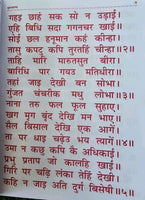 गहइ छाहँ सक सो न उड़ाई।
एहि बिधि सदा गगनचर खाई॥
सोइ छल हनूमान कहँ कीन्हा।
तासु कपटु कपि तुरतहिं चीन्हा॥२॥
ताहि मारि मारुतसुत बीरा।
बारिधि पार गयउ मतिधीरा॥
तहाँ जाइ देखी बन सोभा।
गुंजत चंचरीक मधु लोभा॥३॥
नाना तरु फल फूल सुहाए।
खग मृग बृंद देखि मन भाए॥
सैल बिसाल देखि एक आगें।
ता पर धाइ चढ़ेउ भय त्यागें॥४॥
उमा न कछु कपि कै अधिकाई।
प्रभु प्रताप जो कालहि खाई॥
गिरि पर चढ़ि लंका तेहिं देखी।
कहि न जाइ अति दुर्ग बिसेषी॥५॥